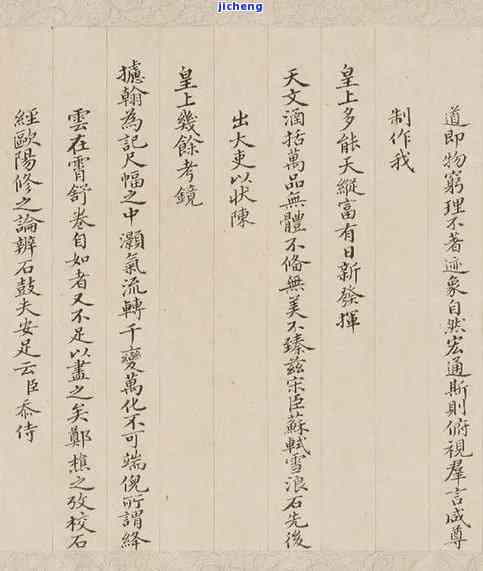 jicheng
道即物窮理不著迹象自然宏通斯則俯視羣言咸尊
制作我
皇上多能天縱富有日新發揮
天文涵括萬品無體不備無美不臻兹宋臣蘇軾雪浪石先後
出大吏以狀陳
皇上幾餘考鏡
攄翰為記尺幅之中灝氣流轉千變萬化不可端倪所謂絳
雲在霄舒卷自如者又不足以盡之矣鄭樵之攷校石
經歐陽修之論辨石鼓夫安足云臣忝侍